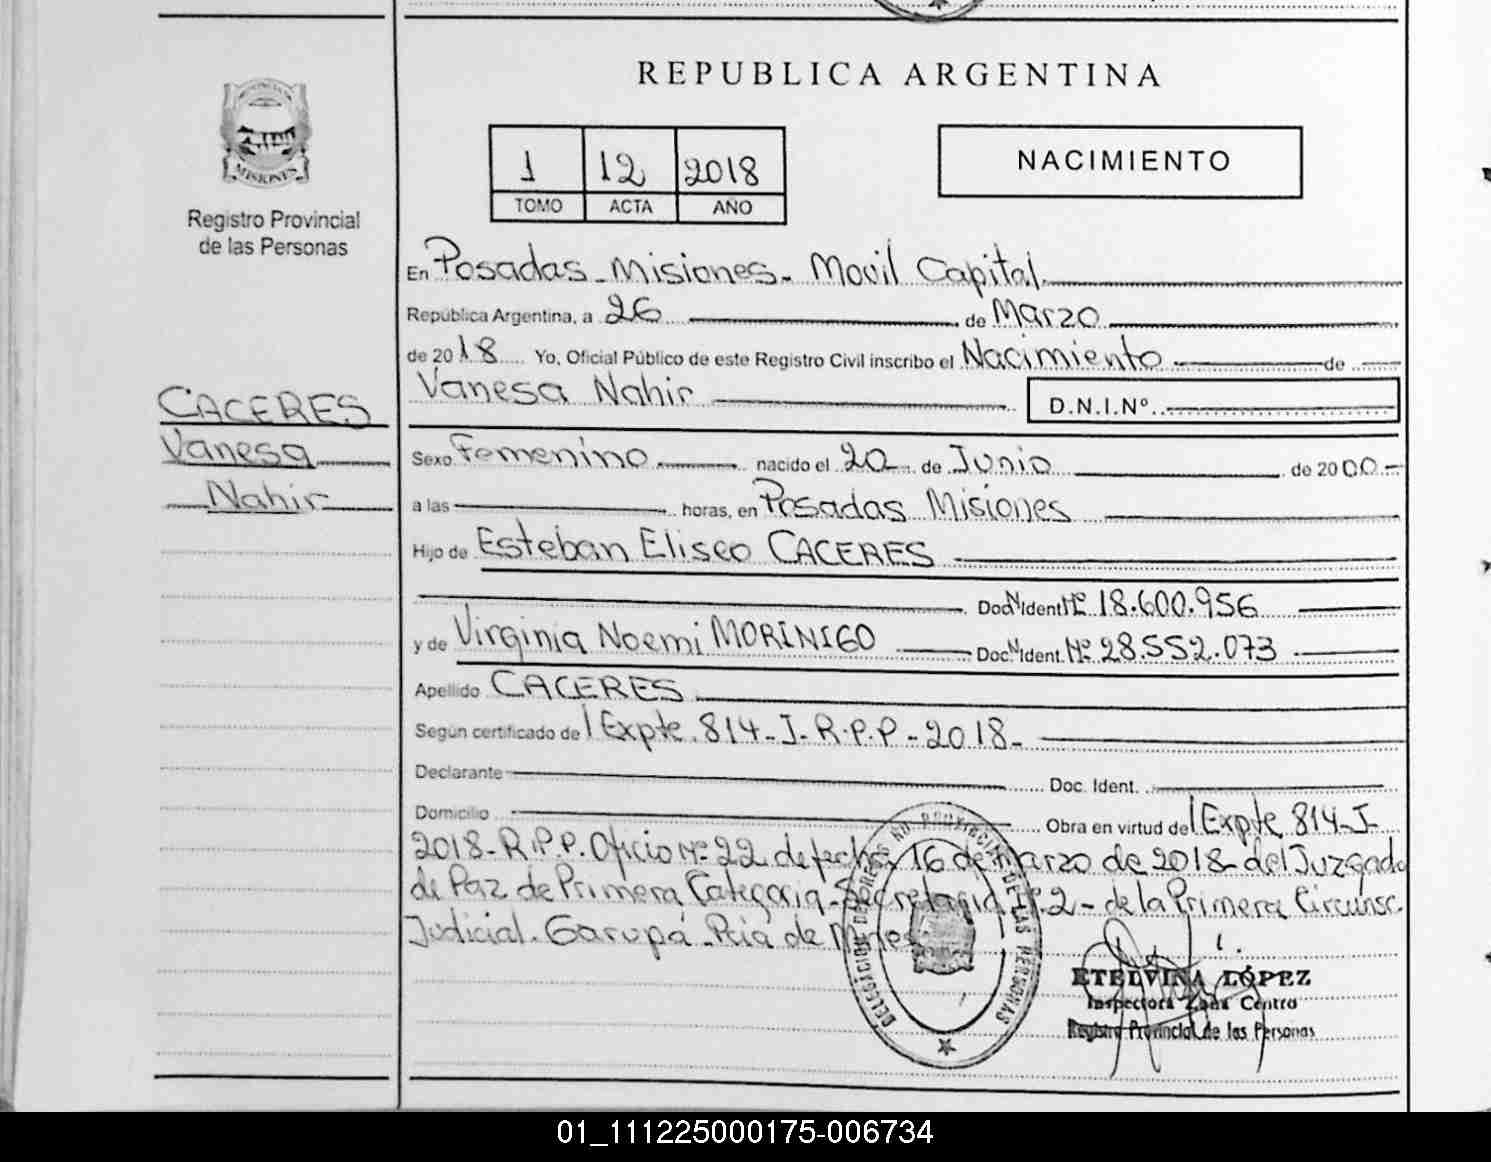 REPUBLICA ARGENTINA
MISIONES
Registro Provincial
de las Personas
1 12 2018
TOMO ACTA AÑO
NACIMIENTO
En Posadas - Misiones - Movil Capital
República Argentina, a 26 de Marzo
de 2018 Yo, Oficial Público de este Registro Civil inscribo el Nacimiento de
Vanesa Nahir D.N.I.Nº
CACERES
Vanesa
Nahir
Sexo Femenino nacido el 20 de Junio de 2000-
a las horas, en Posadas Misiones
Hijo de Esteban Eliseo CACERES
Doc. Ident. Nº 18.600.956
y de Virginia Noemi MORINIGO Doc. Ident. Nº 28.552.073
Apellido CACERES
Según certificado de Expte. 814-J-R.P.P-2018-
Declarante Doc. Ident.
Domicilio Obra en virtud del Expte 814-J-
2018-R.P.P. Oficio Nº 22 de fecha 16 de Marzo de 2018 del Juzgado
de Paz de Primera Categoria - Secretaria Nº 2 - de la Primera Circunsc.
Judicial. Garupá - Pcia de Mnes
DE LAS PERSONAS
ETELVINA LÓPEZ
Inspectora Zona Centro
Registro Provincial de las Personas
01_111225000175-006734